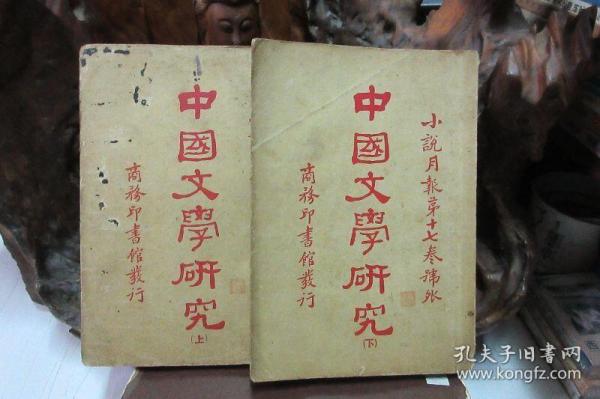 中國文學研究
(上)
商務印書館發行
小說月報第十七卷號外
中國文學研究
(下)
商務印書館發行
孔夫子旧书网
www.kongfz.com